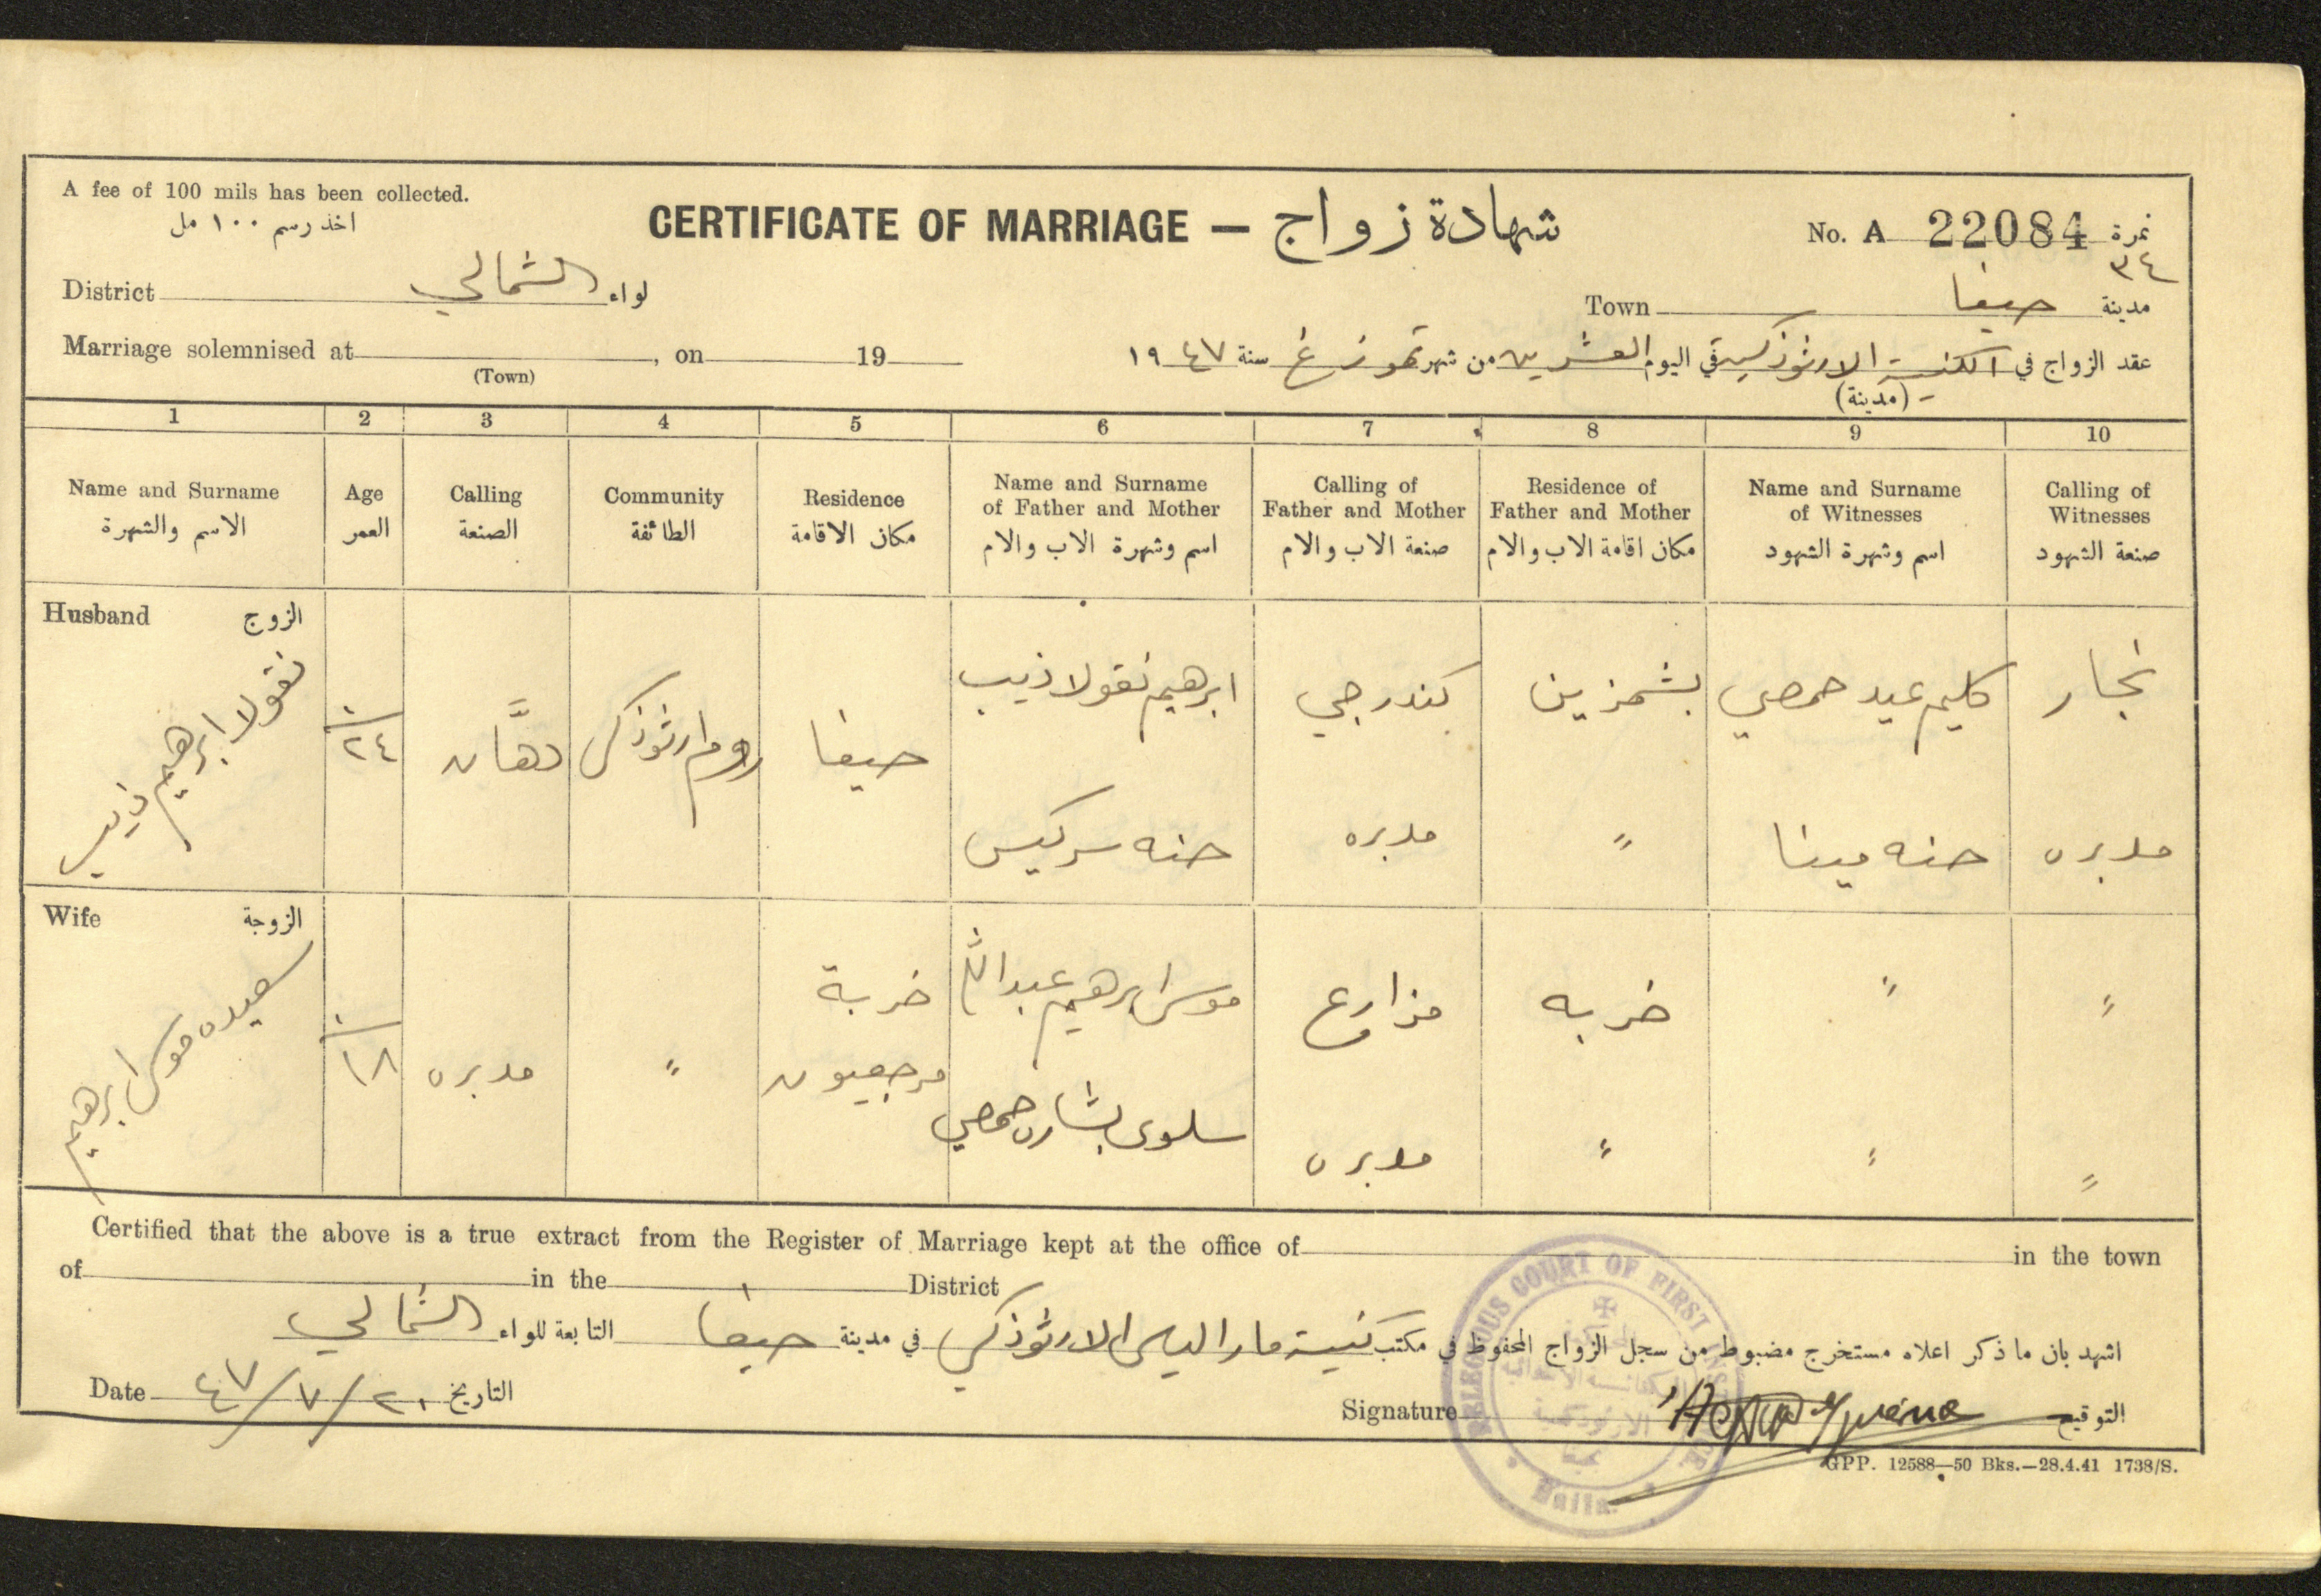 A fee of 100 mils has been collected.
اخذ رسم ١٠٠ مل
CERTIFICATE OF MARRIAGE — شهادة زواج
No. A 22084 نمرة
٣٤
District الشمالي لواء
Town حيفا مدينة
Marriage solemnised at , on 19
(Town)
عقد الزواج في الكنيسة الارثوذكسية في اليوم العشرين من شهر تموز غ سنة ١٩٤٧
(مدينة)
1 2 3 4 5 6 7 8 9 10
Name and Surname
الاسم والشهرة
Age
العمر
Calling
الصنعة
Community
الطائفة
Residence
مكان الاقامة
Name and Surname
of Father and Mother
اسم وشهرة الاب والام
Calling of
Father and Mother
صنعة الاب والام
Residence of
Father and Mother
مكان اقامة الاب والام
Name and Surname
of Witnesses
اسم وشهرة الشهود
Calling of
Witnesses
صنعة الشهود
Husband الزوج
نقولا ابرهيم ذيب
٢٤
دهَّان
روم ارثوذكس
حيفا
ابرهيم نقولا ذيب
حنه سركيس
كندرجي
مدبره
بشمزين
"
كليم عيد حمصي
حنه مينا
نجار
مدبره
Wife الزوجة
سعيده موسى ابرهيم
١٨
مدبره
"
خربة
مرجعيون
موسى ابرهيم عبدالله
سلوى بشاره حمصي
مزارع
مدبره
خربه
"
"
"
"
"
Certified that the above is a true extract from the Register of Marriage kept at the office of in the town
of in the District
اشهد بان ما ذكر اعلاه مستخرج مضبوط من سجل الزواج المحفوظ في مكتب كنيسة مار الياس الارثوذكس في مدينة حيفا التابعة للواء الشمالي
Date ٤٧/٧/٢٠ التاريخ
Signature التوقيع
COURT OF FIRST
الارثوذكسية
Haifa
GPP. 12588—50 Bks.—28.4.41 1738/S.